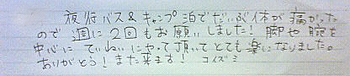 夜行バス&キャンプ泊でだいぶ体が痛かった
ので週に2回もお願いしました!脚や腕を
中心にていねいにやって頂いてとても楽になりました。
ありがとう!また来ます! コイズミ